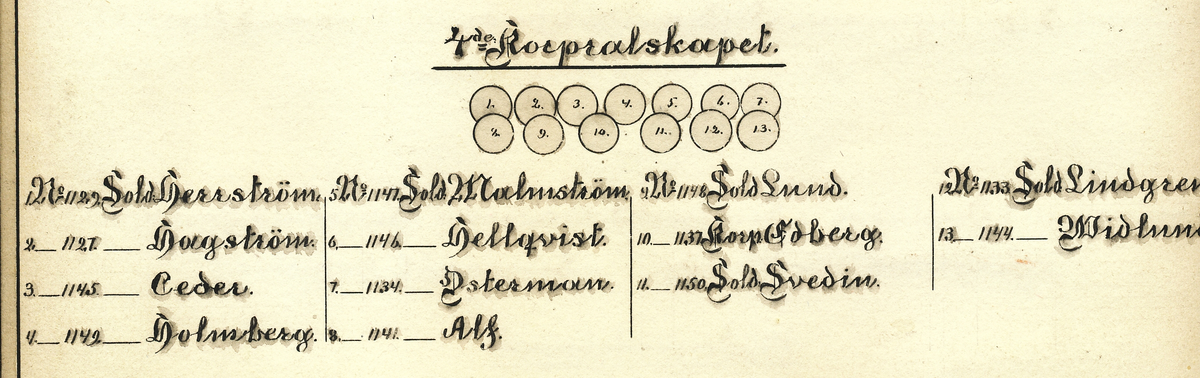 4de Korpralskapet.
1. 2. 3. 4. 5. 6. 7.
8. 9. 10. 11. 12. 13.
1. No 1129. Sold. Herrström.
2. 1127. Hagström.
3. 1145. Ceder.
4. 1149. Holmberg.
5 No 1147. Sold. Malmström.
6. 1146. Hellqvist.
7. 1134. Österman.
8. 1141. Alf.
9 No 1148. Sold. Lund.
10. 1137. Korp. Edberg.
11. 1150. Sold. Svedin.
12. No 1133. Sold. Lindgren
13. 1144. Widlun